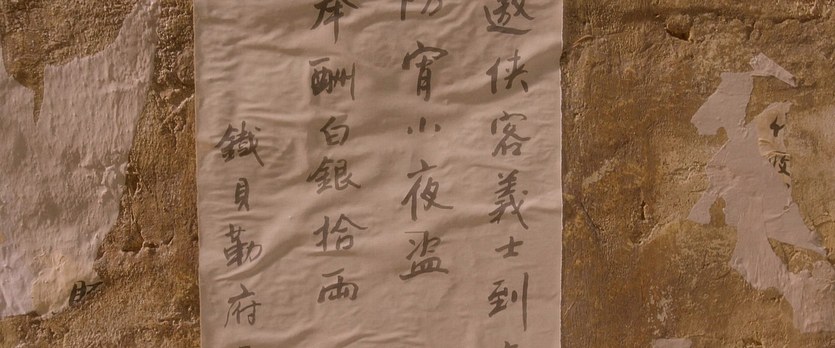 邀俠客義士到
防宵小夜盜
奉酬白銀拾兩
鐵貝勒府